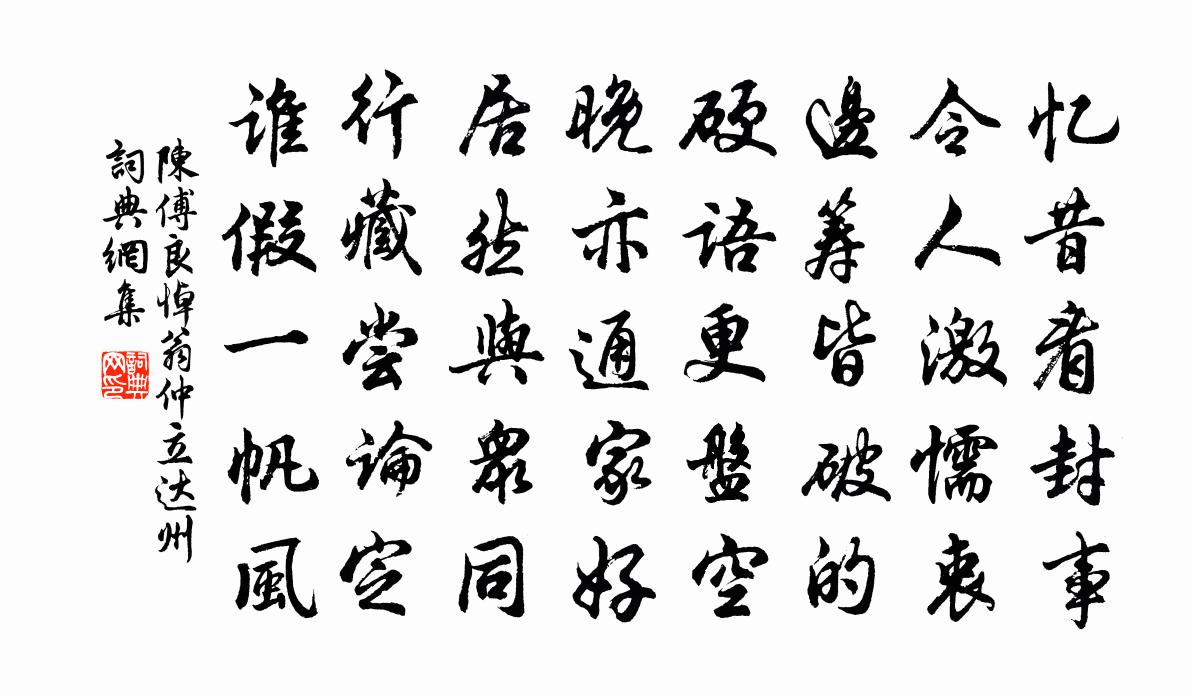 忆昔看封事
令人激懦衷
邊筹皆破的
硬语更盤空
晚亦通家好
居然與眾同
行藏尝論定
谁假一帆風
陳傅良悼翁仲立达州
詞典網集
詞典网印